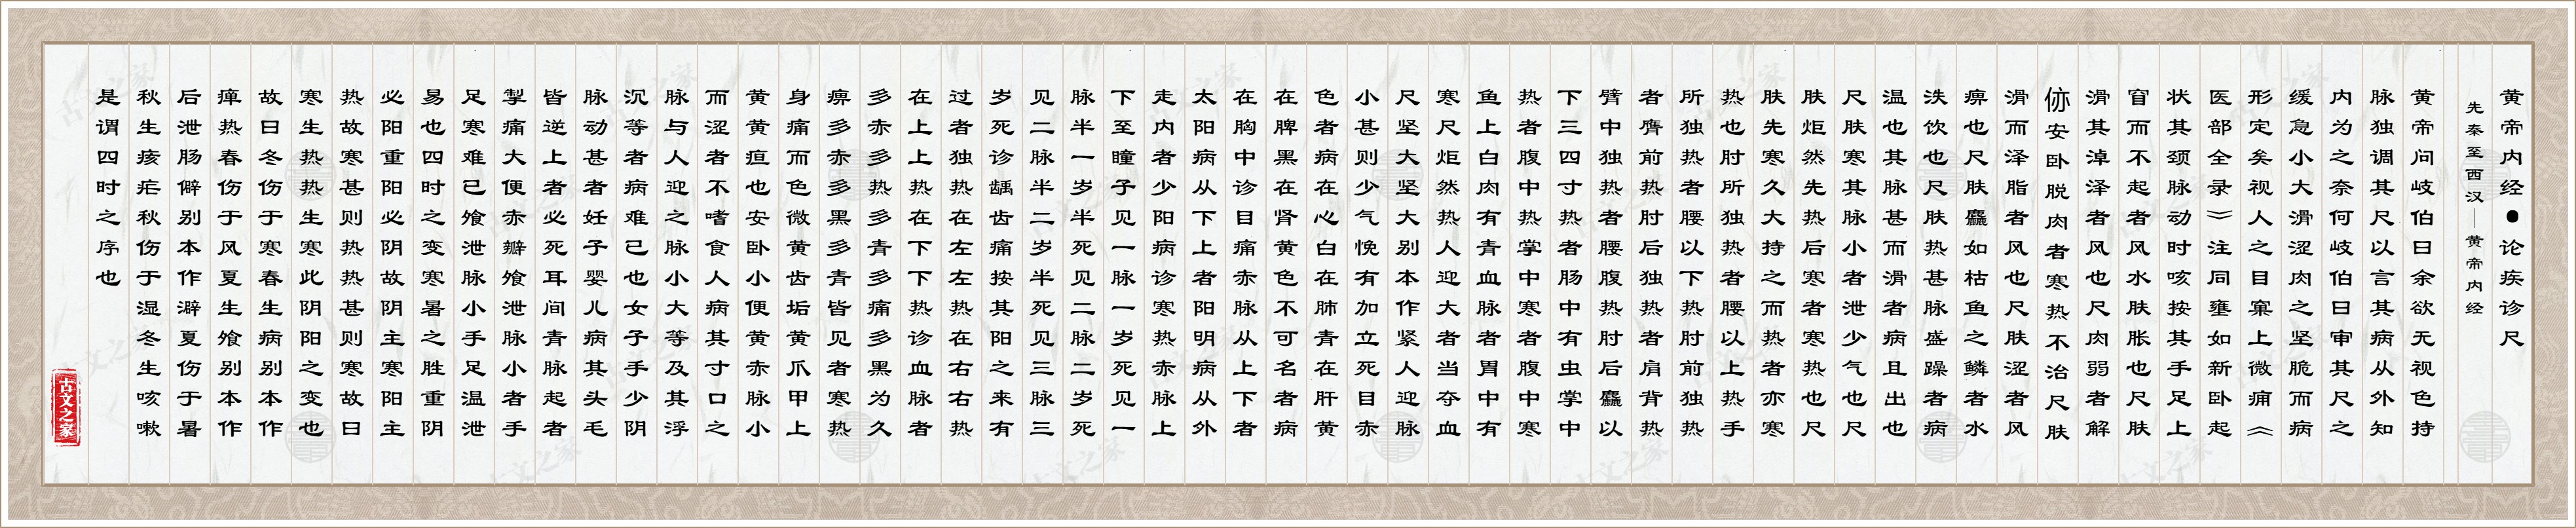 黄帝内经●论疾诊尺
先秦至西汉—黄帝内经
黄帝问岐伯曰余欲无视色持
脉独调其尺以言其病从外知
内为之奈何岐伯曰审其尺之
缓急小大滑涩肉之坚脆而病
形定矣视人之目窠上微痈《
医部全录》注同壅如新卧起
状其颈脉动时咳按其手足上
窅而不起者风水肤胀也尺肤
滑其淖泽者风也尺肉弱者解
㑊安卧脱肉者寒热不治尺肤
滑而泽脂者风也尺肤涩者风
痹也尺肤麤如枯鱼之鳞者水
泆饮也尺肤热甚脉盛躁者病
温也其脉甚而滑者病且出也
尺肤寒其脉小者泄少气也尺
肤炬然先热后寒者寒热也尺
肤先寒久大持之而热者亦寒
热也肘所独热者腰以上热手
所独热者腰以下热肘前独热
者膺前热肘后独热者肩背热
臂中独热者腰腹热肘后麤以
下三四寸热者肠中有虫掌中
热者腹中热掌中寒者腹中寒
鱼上白肉有青血脉者胃中有
寒尺炬然热人迎大者当夺血
尺坚大坚大别本作紧人迎脉
小甚则少气悗有加立死目赤
色者病在心白在肺青在肝黄
在脾黑在肾黄色不可名者病
在胸中诊目痛赤脉从上下者
太阳病从下上者阳明病从外
走内者少阳病诊寒热赤脉上
下至瞳子见一脉一岁死见一
脉半一岁半死见二脉二岁死
见二脉半二岁半死见三脉三
岁死诊龋齿痛按其阳之来有
过者独热在左左热在右右热
在上上热在下下热诊血脉者
多赤多热多青多痛多黑为久
痹多赤多黑多青皆见者寒热
身痛而色微黄齿垢黄爪甲上
黄黄疸也安卧小便黄赤脉小
而涩者不嗜食人病其寸口之
脉与人迎之脉小大等及其浮
沉等者病难已也女子手少阴
脉动甚者妊子婴儿病其头毛
皆逆上者必死耳间青脉起者
掣痛大便赤瓣飧泄脉小者手
足寒难已飧泄脉小手足温泄
易也四时之变寒暑之胜重阴
必阳重阳必阴故阴主寒阳主
热故寒甚则热热甚则寒故曰
寒生热热生寒此阴阳之变也
故曰冬伤于寒春生病别本作
瘅热春伤于风夏生飧别本作
后泄肠僻别本作澼夏伤于暑
秋生痎疟秋伤于湿冬生咳嗽
是谓四时之序也
古文之家